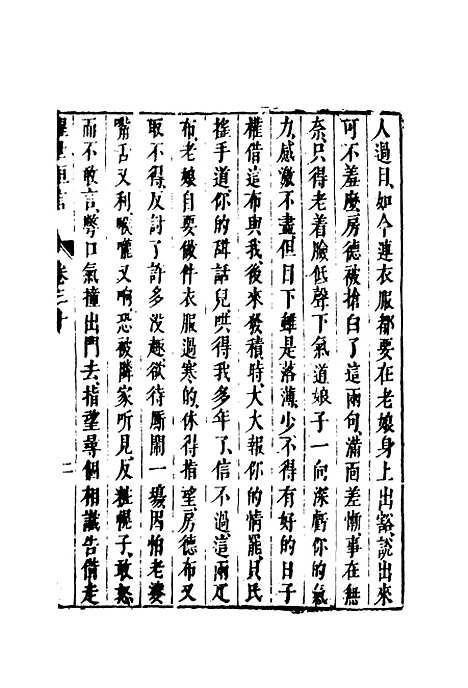 人過日如今連衣服都要在老娘身上出豁說出來
可不羞麼房德被搶白了這兩句滿面羞慚事在無
奈只得老着臉低聲下氣道娘子一向深虧你的氣
力感激不盡但目下雖是落薄少不得有好的日子
權借這布與我後來發積時大大報你的情罷貝氏
搖手道你的甜話兒哄得我多年了信不過這兩疋
布老娘自要做件衣服過寒的休得指望房德布又
取不得反討了許多没趣欲待厮鬧一塲因怕老婆
嘴舌又利喉嚨又响恐被隣家听見反粧幌子敢怒
而不敢言憋口氣撞出門去指望尋個相識告借走
醒世恒言
卷三十
二